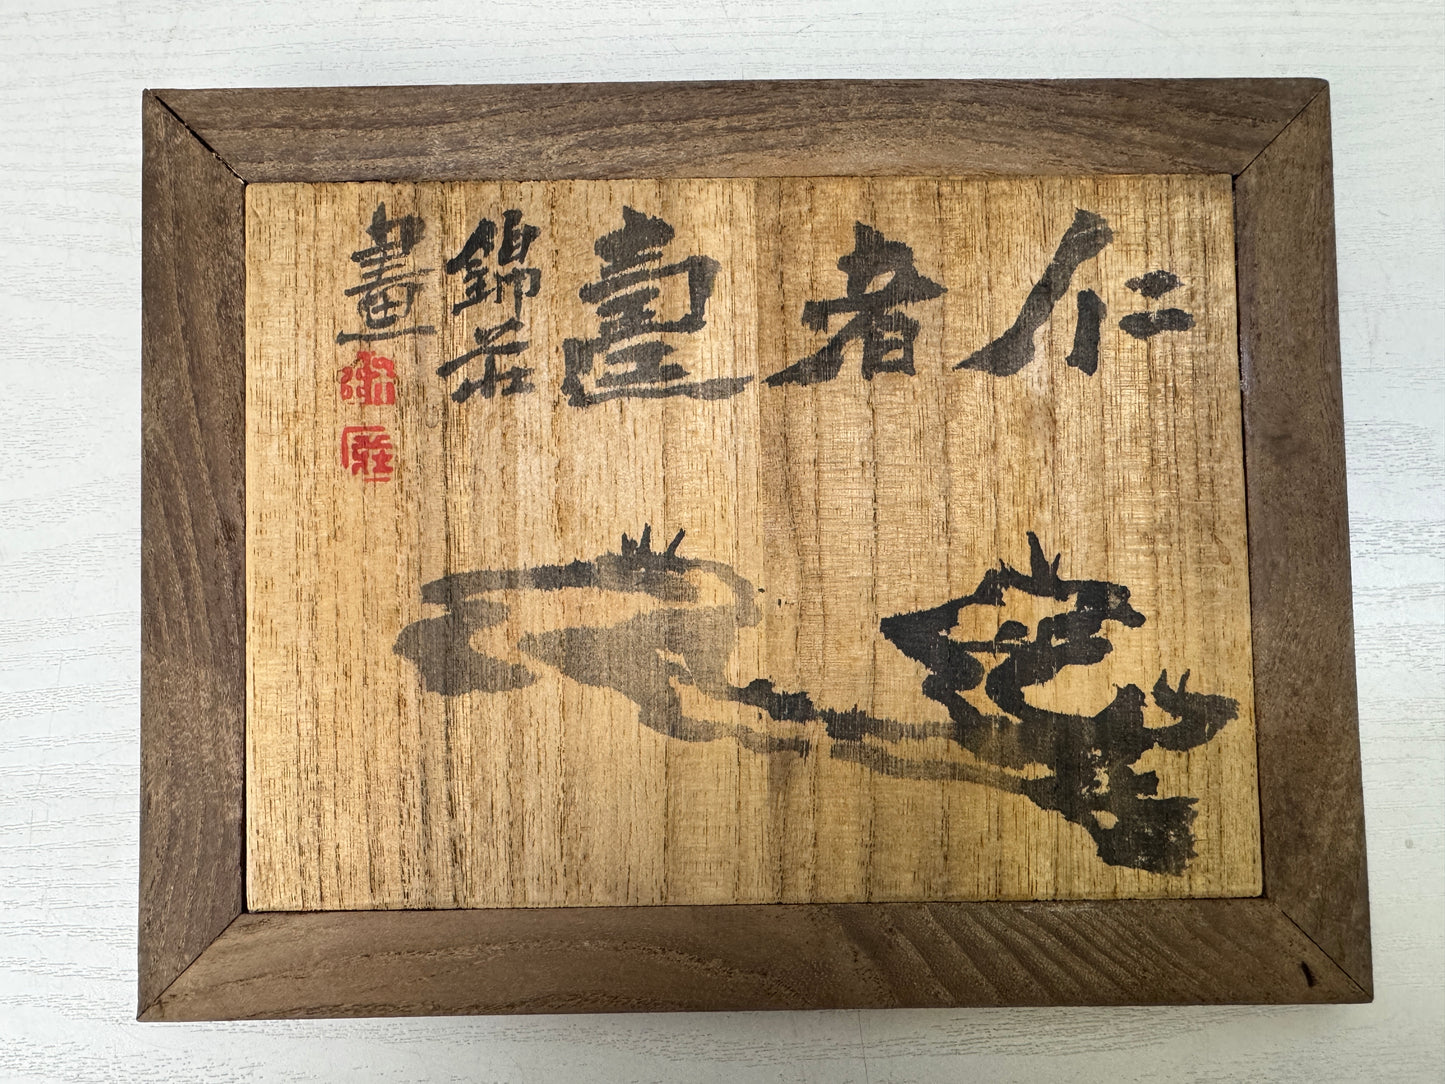 仁者壽
錦莊
畫